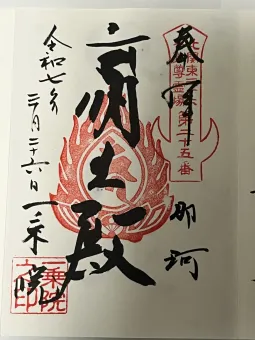 奉拝
尊霊場第二十五番
那珂
明王殿
令和七年
三月二十六日
一乗院
一乗院之印